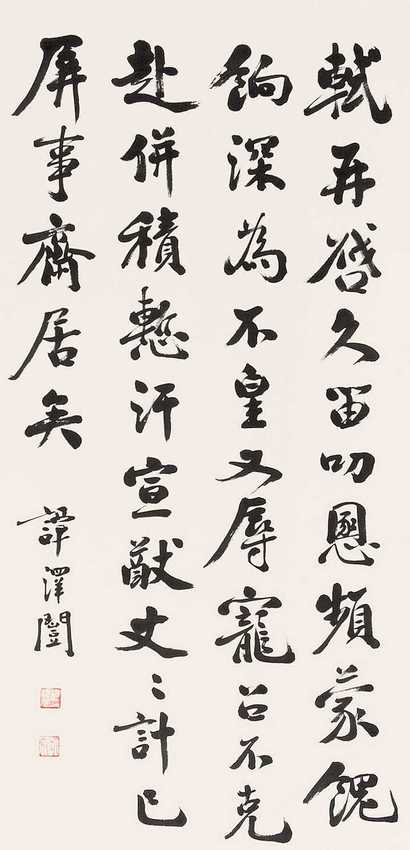 軾再啓久留叨恩頻蒙餽
餉深為不皇又辱寵召不克
赴併積慙汗宣猷丈〻計已
屏事齋居矣
譚澤闓